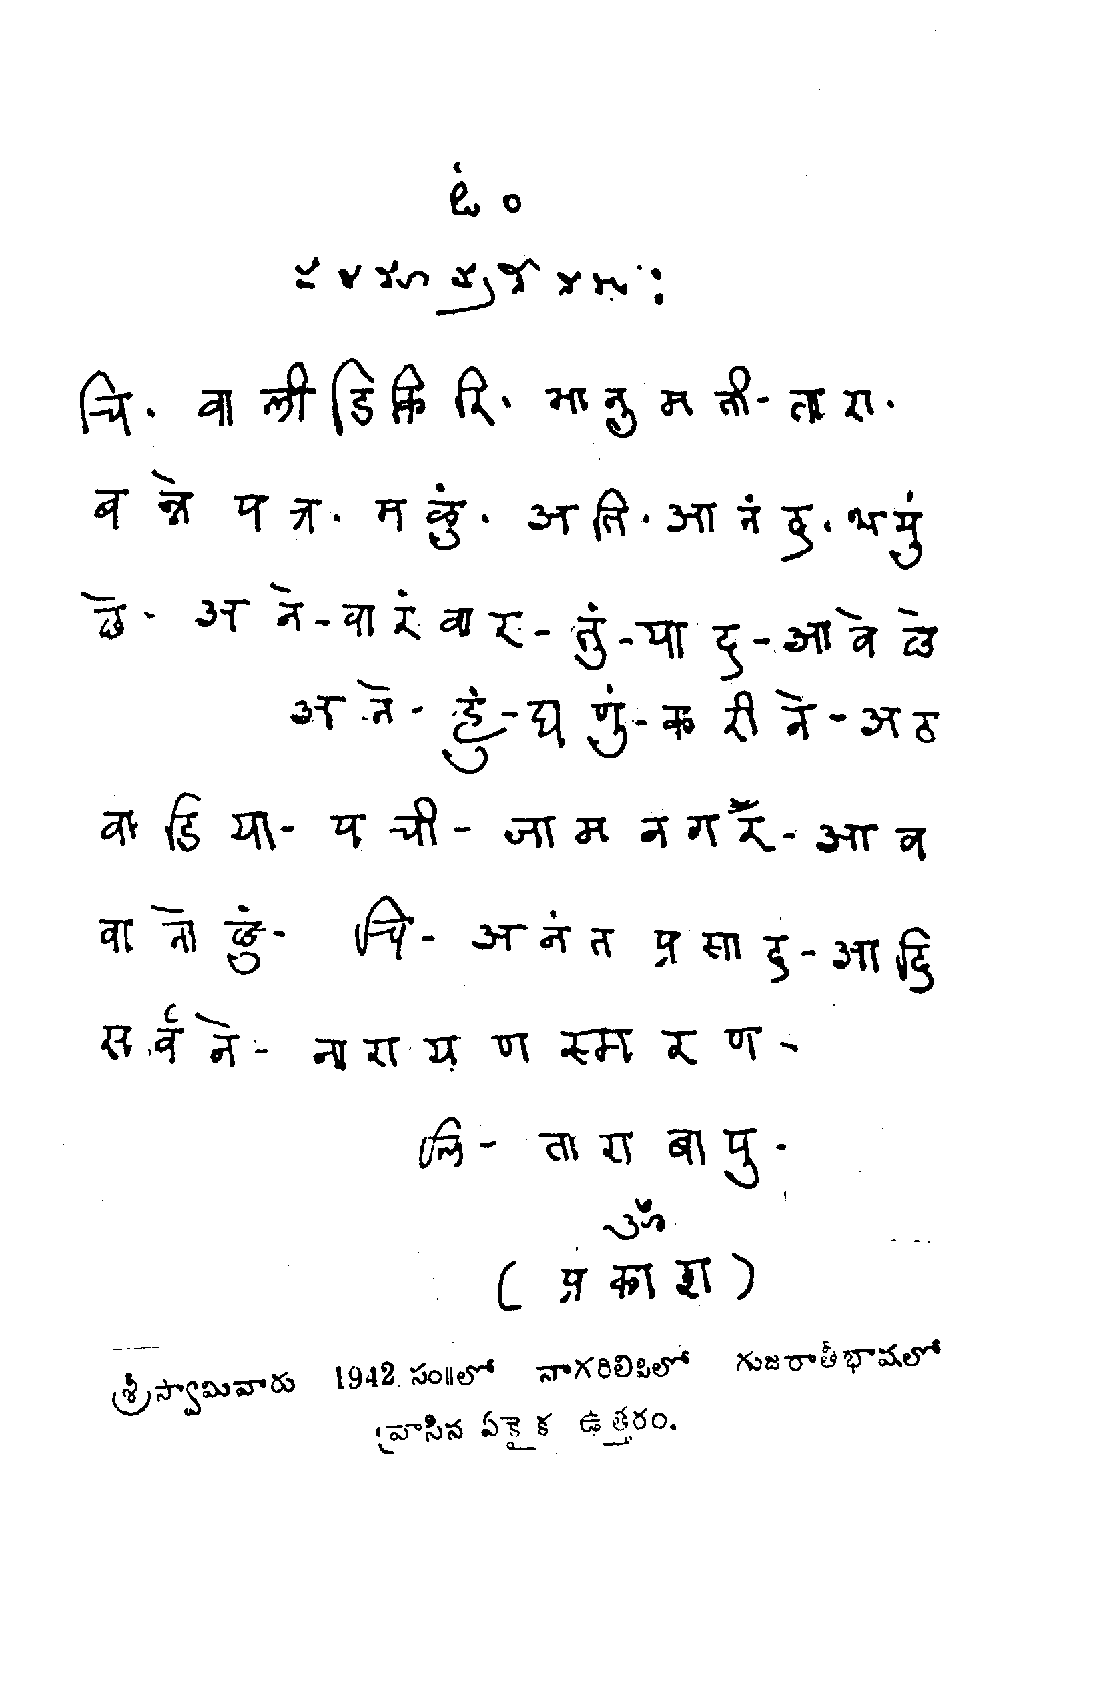 ఓం ०
చి. वाली डिकिरि. भानुमती - तारा.
बन्ने पत्र. मळुं. अति. आनंद. भयुं
छे. अने - वारंवार - तुं - याद - आवे छे
अने - हुं - घणुं - करीने - अठ
वाडिया - पची - जामनगर - आव
वानो छुं - चि - अनंत प्रसाद - आदि
सर्वने - नारायण स्मरण -
लि - तारा बापु.
ॐ
( प्रकाश )
శ్రీస్వామివారు 1942 సం॥లో నాగరిలిపిలో గుజరాతీభాషలో
వ్రాసిన ఏకైక ఉత్తరం.